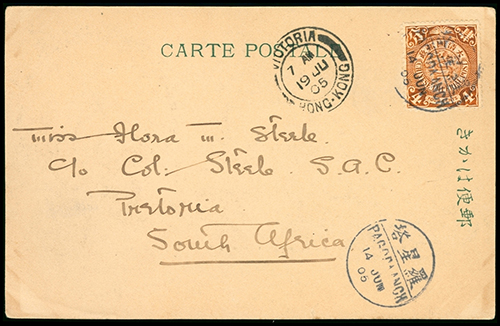 CARTE POSTALE
VICTORIA
7 AM
19 JU
05
HONG-KONG
4
4
14 JUN
05
Miss Flora M. Steele
c/o Col. Steele S.A.C.
Pretoria
South Africa
きかは便郵
塔星羅
PAGODA ANCH
14 JUN
05